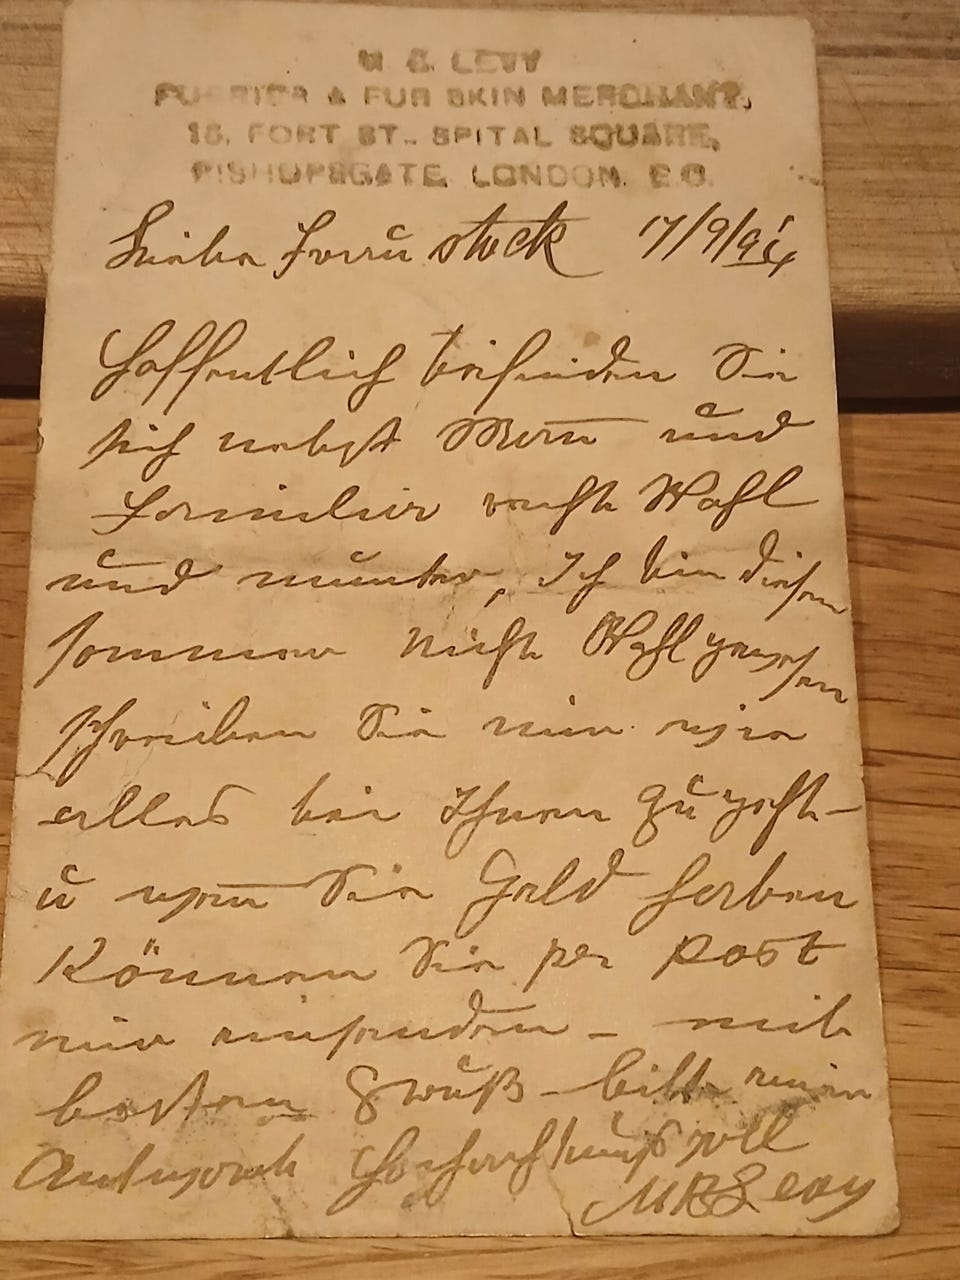 LEVY
FURRIER & FUR SKIN MERCHANT,
15, FORT ST., SPITAL SQUARE,
BISHOPSGATE, LONDON. E.C.
Liebe Frau Stock 17/9/94
Hoffentlich befinden Sie
sich nebst Mann und
Familie recht Wohl
und munter, Ich bin diesen
sommer nicht Wohl gewesen
schreiben Sie mir wie
alles bei Ihnen zu geht-
u wenn Sie Geld haben
Können Sie per Post
mir einsenden - mit
besten Gruß - bitte um
Antwort Hochachtungsvoll
Levy